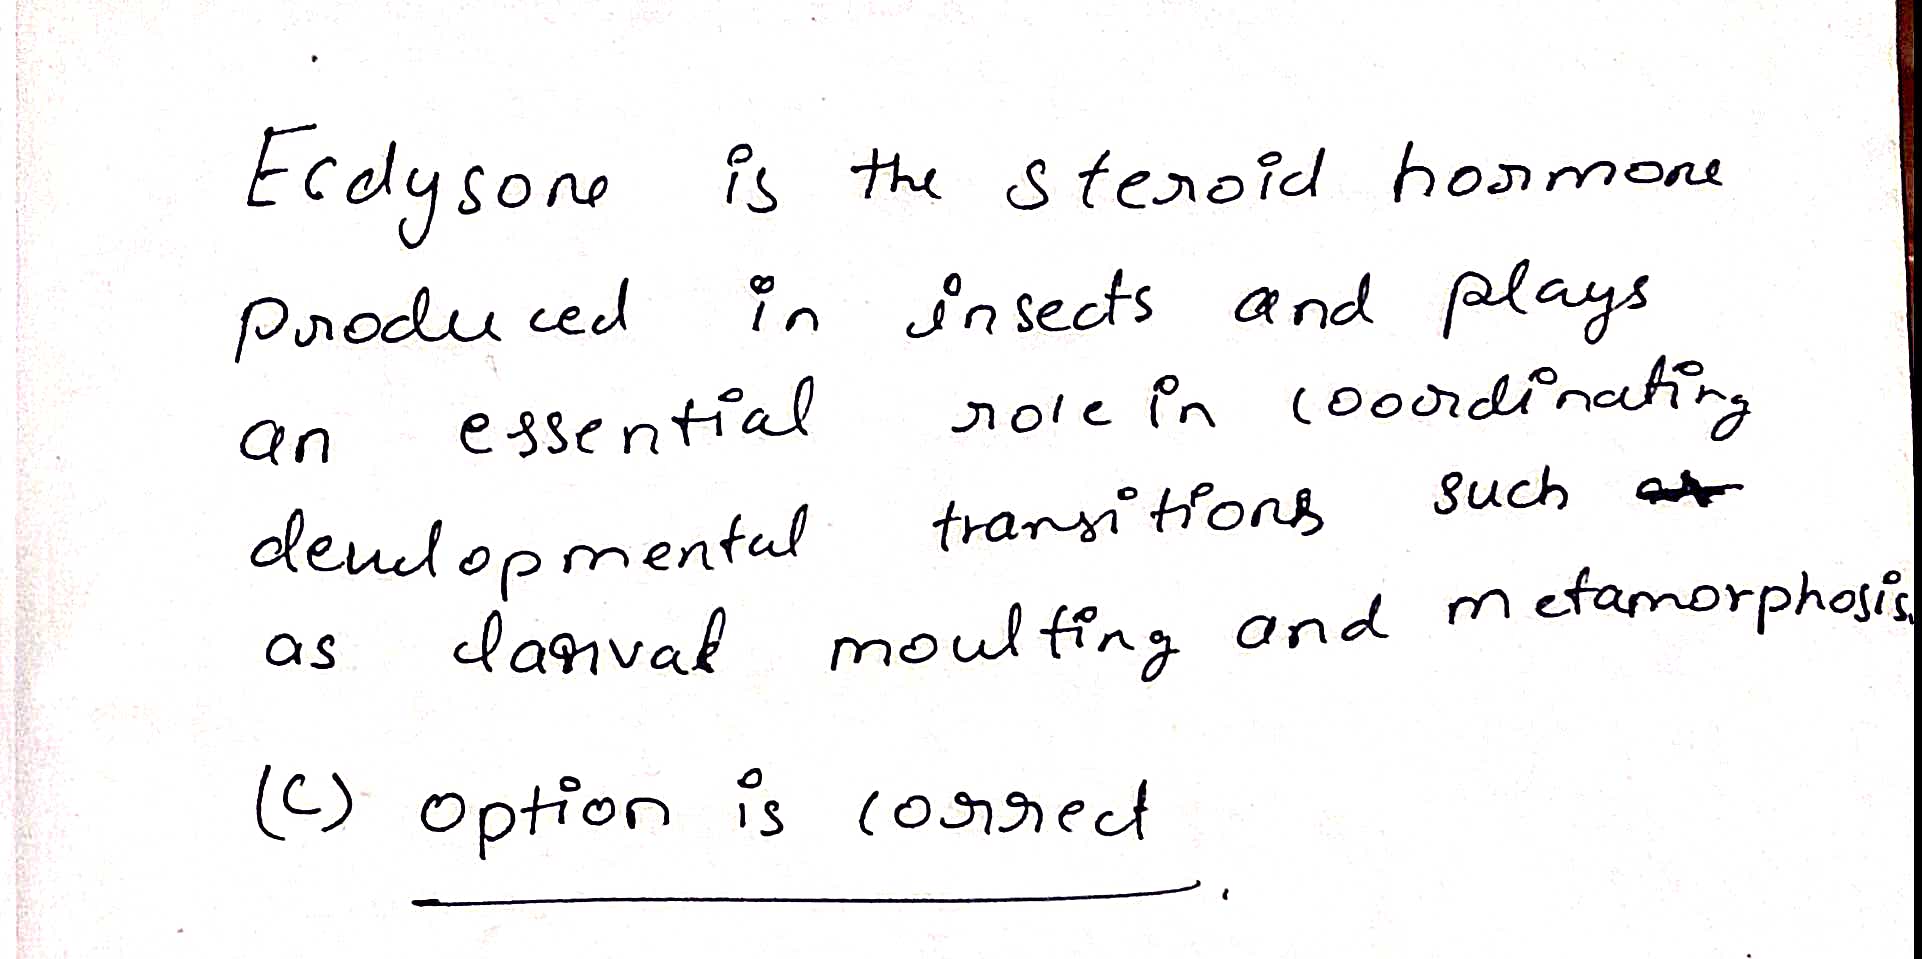 Ecdysone is the steroid hormone
produced in insects and plays
an essential role in coordinating
developmental transitions such
as larval moulting and metamorphosis.
(C) option is correct.